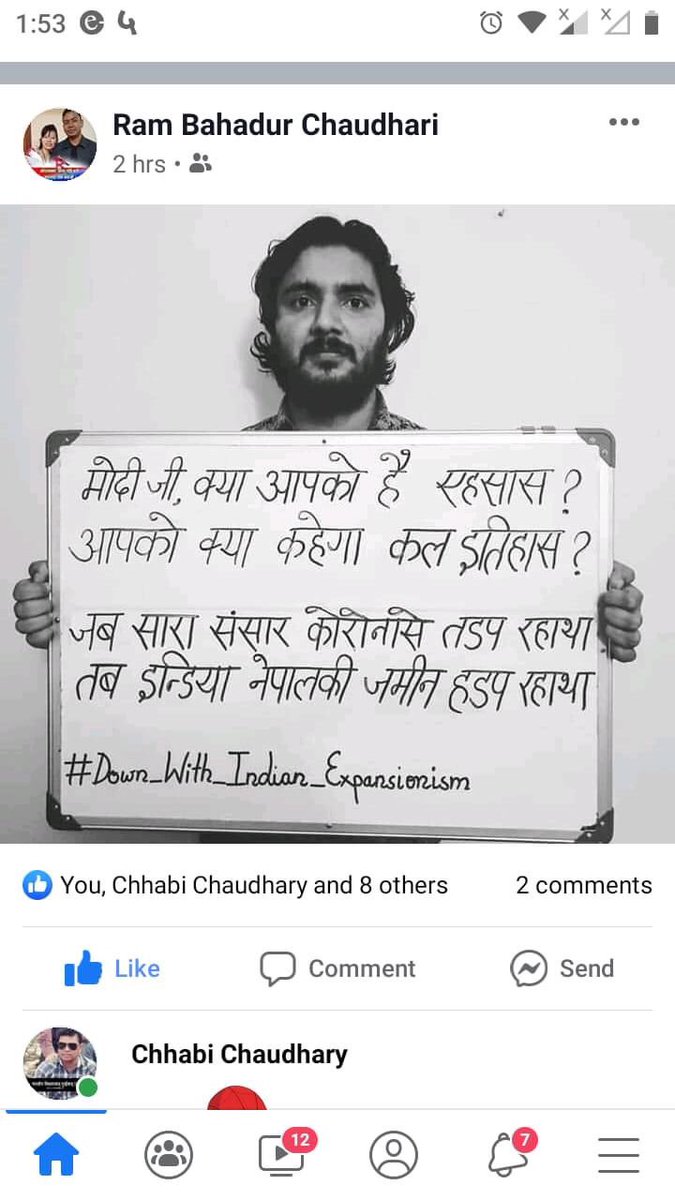 1:53
Ram Bahadur Chaudhari
2 hrs •
मोदी जी, क्या आपको है एहसास ?
आपको क्या कहेगा कल इतिहास ?
जब सारा संसार कोरोनासे तडप रहाथा
तब इन्डिया नेपालकी जमीन हडप रहाथा
#Down_With_Indian_Expansionism
You, Chhabi Chaudhary and 8 others 2 comments
Like Comment Send
Chhabi Chaudhary
12 7